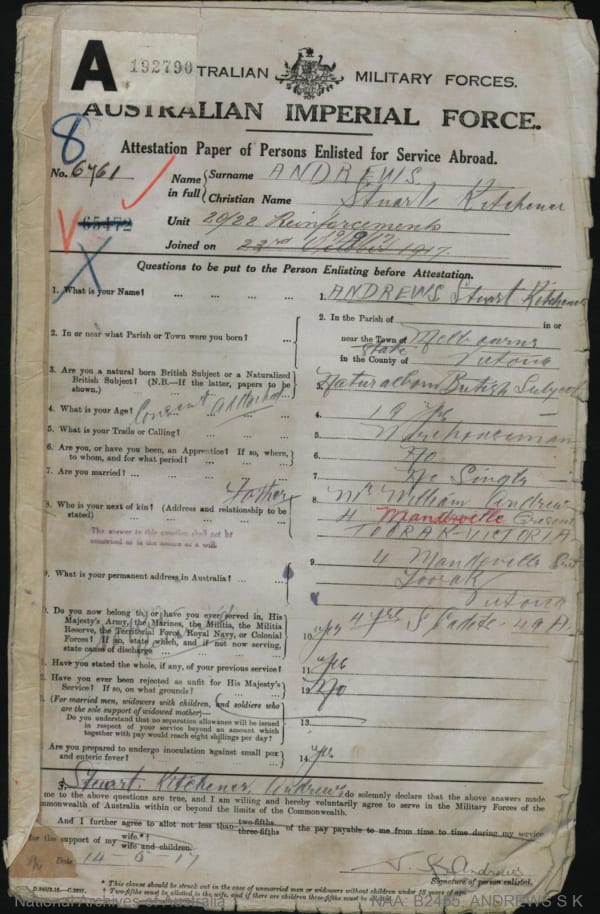 A 192790 TRALIAN MILITARY FORCES.
AUSTRALIAN IMPERIAL FORCE.
Attestation Paper of Persons Enlisted for Service Abroad.
8
No. 6761
Name in full { Surname ANDREWS
Christian Name Stuart Kitchener
65472
Unit 20/22 Reinforcements
Joined on 22nd October 1917.
Questions to be put to the Person Enlisting before Attestation.
1. What is your Name? ... ... ... ... 1. ANDREWS Stuart Kitchener
2. In or near what Parish or Town were you born? ... 2. In the Parish of in or
near the Town of Melbourne
State
in the County of Victoria
3. Are you a natural born British Subject or a Naturalized British Subject? (N.B.—If the latter, papers to be shown.) 3. Natural born British Subject
4. What is your Age? Consent attached 4. 19 yrs
5. What is your Trade or Calling? ... ... ... 5. Warehouseman
6. Are you, or have you been, an Apprentice? If so, where, to whom, and for what period? ... ... ... 6. No
7. Are you married? ... ... ... ... ... 7. No Single
8. Who is your next of kin? (Address and relationship to be stated) Father 8. Mr William Andrews
4 Mandeville Crescent
TOORAK-VICTORIA
The answer to this question shall not be
construed as in the nature of a will.
9. What is your permanent address in Australia? ... ... 9. 4 Mandeville Cres
Toorak
Victoria
Do you now belong to, or have you ever served in, His Majesty's Army, the Marines, the Militia, the Militia Reserve, the Territorial Force, Royal Navy, or Colonial Forces? If so, state which, and if not now serving, state cause of discharge 10. yes 4 yrs S Cadets - 49A
Have you stated the whole, if any, of your previous service? 11. yes
Have you ever been rejected as unfit for His Majesty's Service? If so, on what grounds? ... ... ... 12. No
(For married men, widowers with children, and soldiers who are the sole support of widowed mother)—
Do you understand that no separation allowance will be issued in respect of your service beyond an amount which together with pay would reach eight shillings per day? 13.
Are you prepared to undergo inoculation against small pox and enteric fever? ... ... ... ... 14. yes
I, Stuart Kitchener Andrews do solemnly declare that the above answers made
me to the above questions are true, and I am willing and hereby voluntarily agree to serve in the Military Forces of the
mmonwealth of Australia within or beyond the limits of the Commonwealth.
And I further agree to allot not less than two-fifths three-fifths of the pay payable to me from time to time during my service
for the support of my wife.* † wife and children.
Date 14-5-17
S. K. Andrews
Signature of person enlisted.
* This clause should be struck out in the case of unmarried men or widowers without children under 18 years of age.
† Two-fifths must be allotted to the wife, and if there are children three-fifths must be allotted.
National Archives of Australia NAA: B2455, ANDRIENS S K